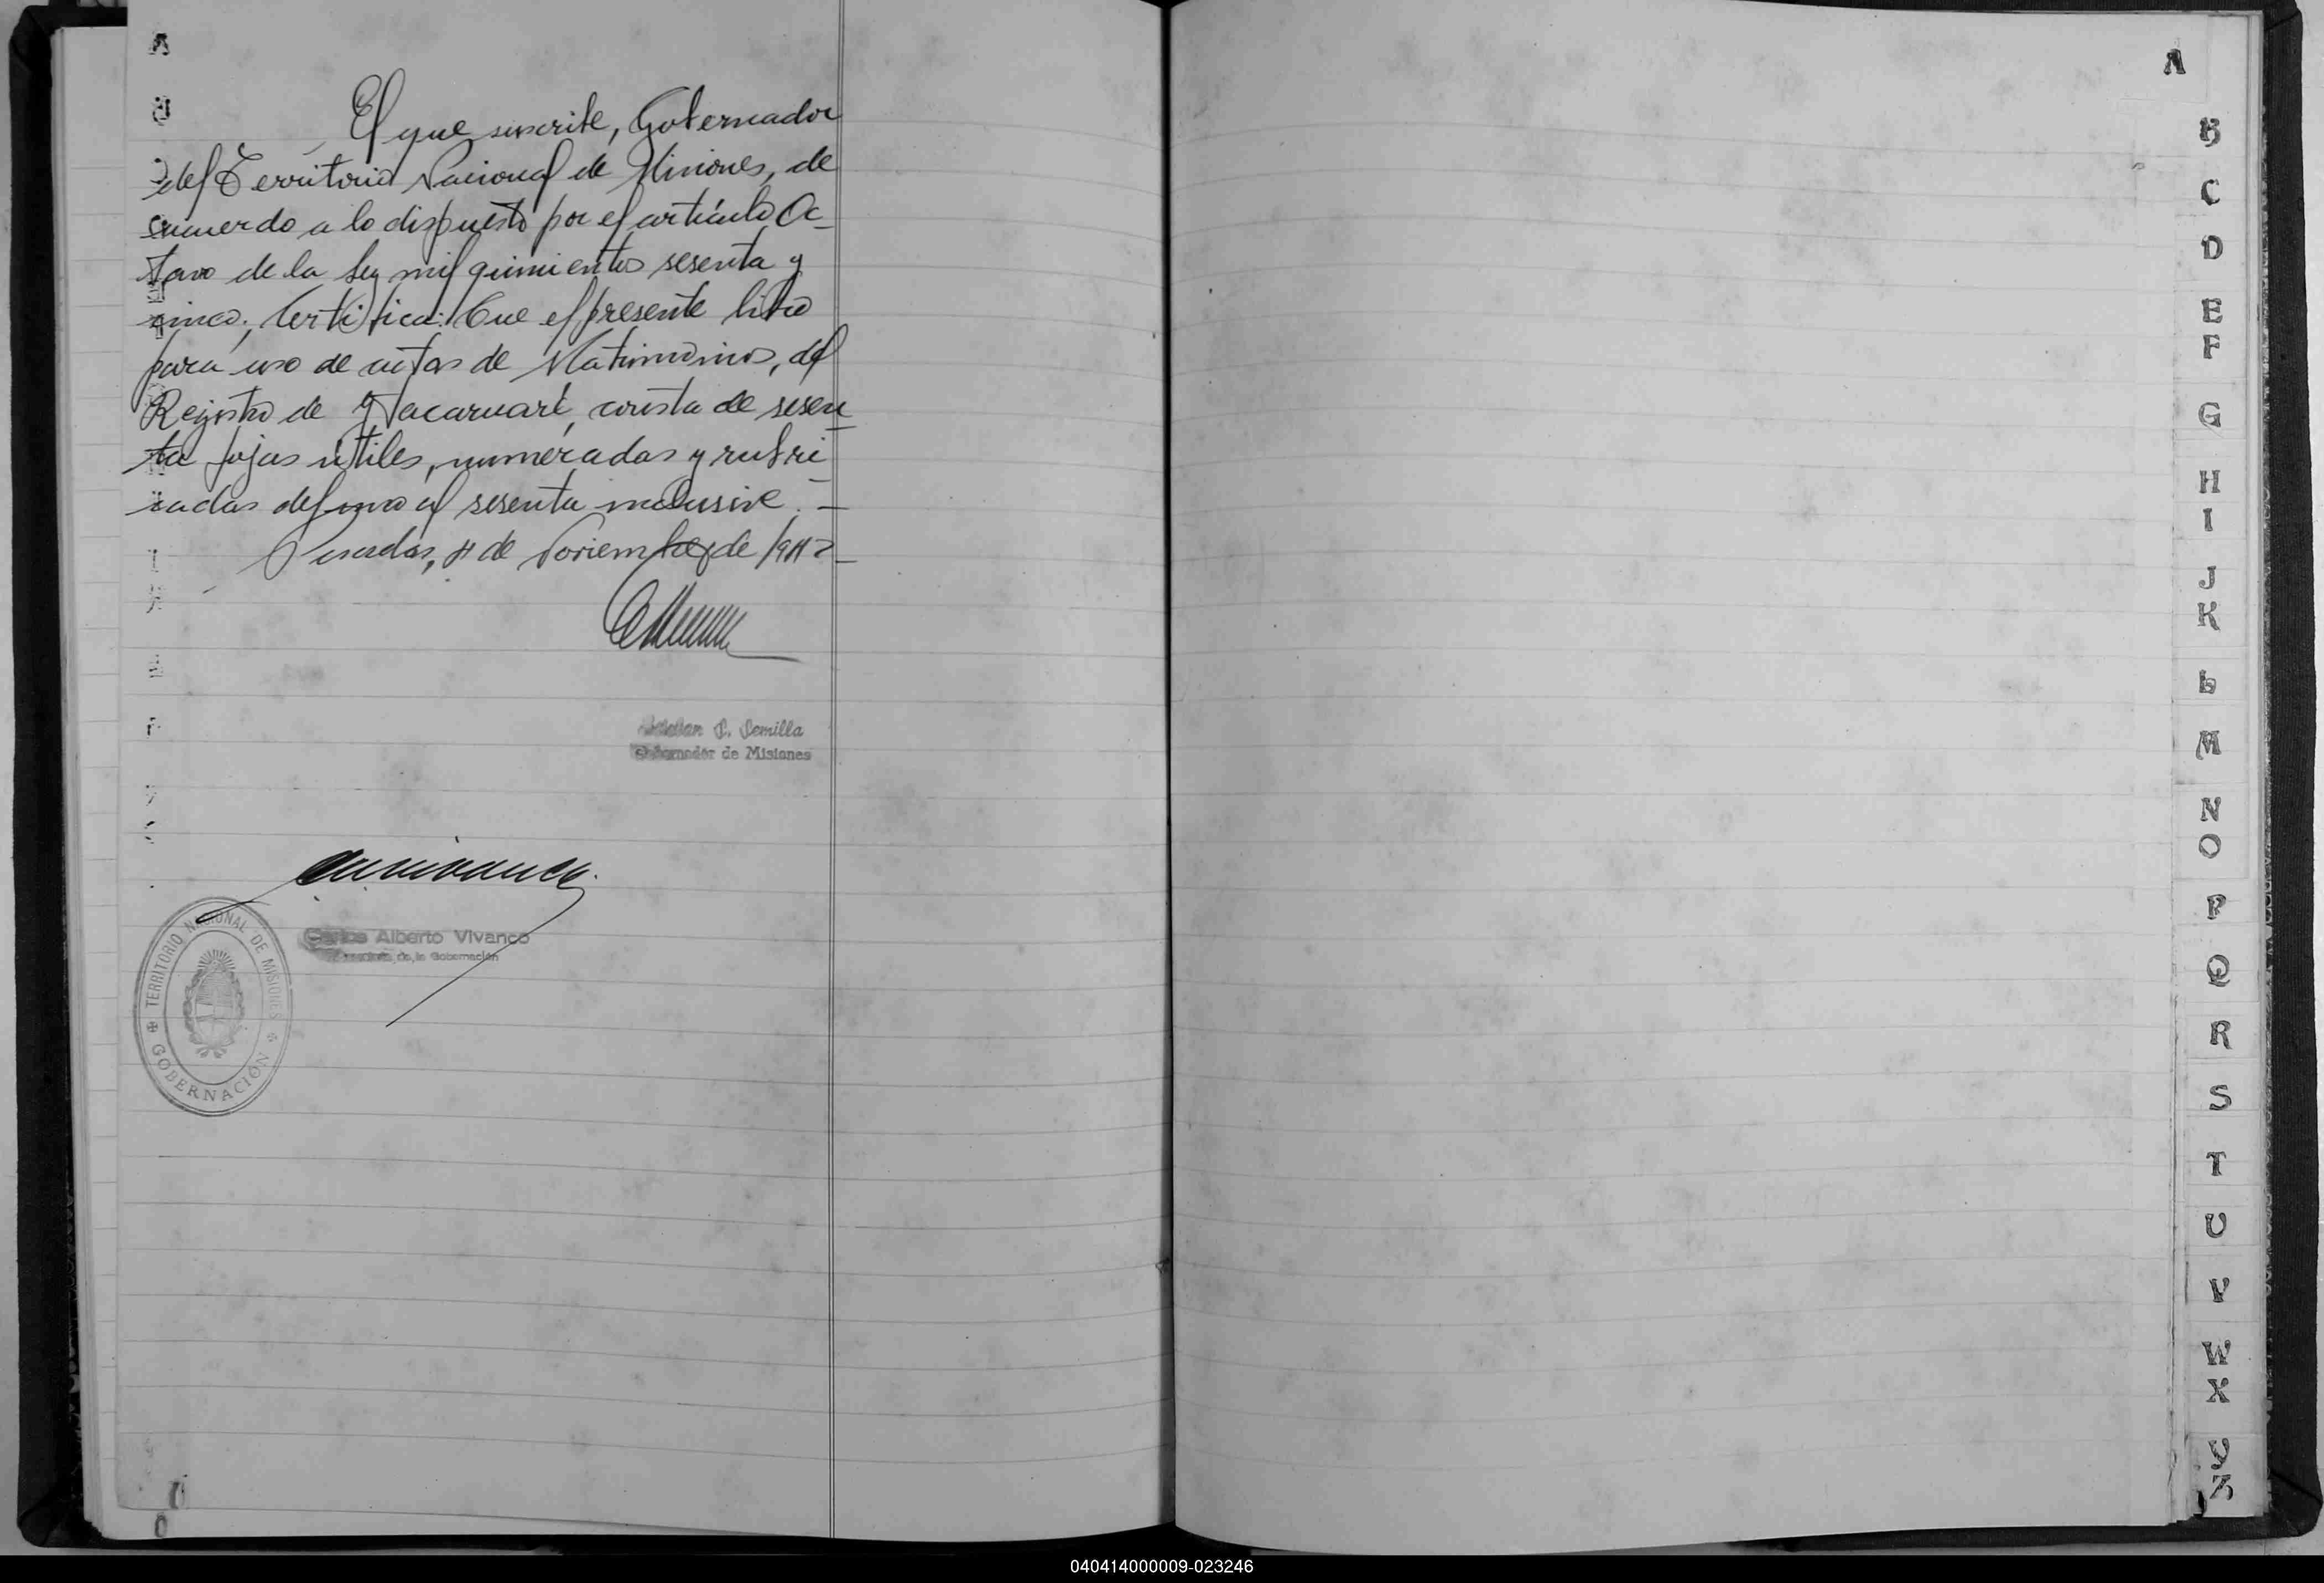 A
El que suscribe, Gobernador
del Territorio Nacional de Misiones, de
acuerdo a lo dispuesto por el artículo Oc-
tavo de la Ley mil quinientos sesenta y
cinco; Certifica: Que el presente libro
para uso de actas de Matrimonios, del
Registro de Yacaruaré, consta de sesen-
ta fojas útiles, numeradas y rubri-
cadas del uno al sesenta inclusive. —
Posadas, de Noviembre de
Semilla
Gobernador de Misiones
Carlos Alberto Vivanco
de la Gobernación
TERRITORIO NACIONAL DE MISIONES
GOBERNACIÓN
A
B
C
D
E
F
G
H
I
J
K
L
M
N
O
P
Q
R
S
T
U
V
W
X
Y
Z
040414000009-023246